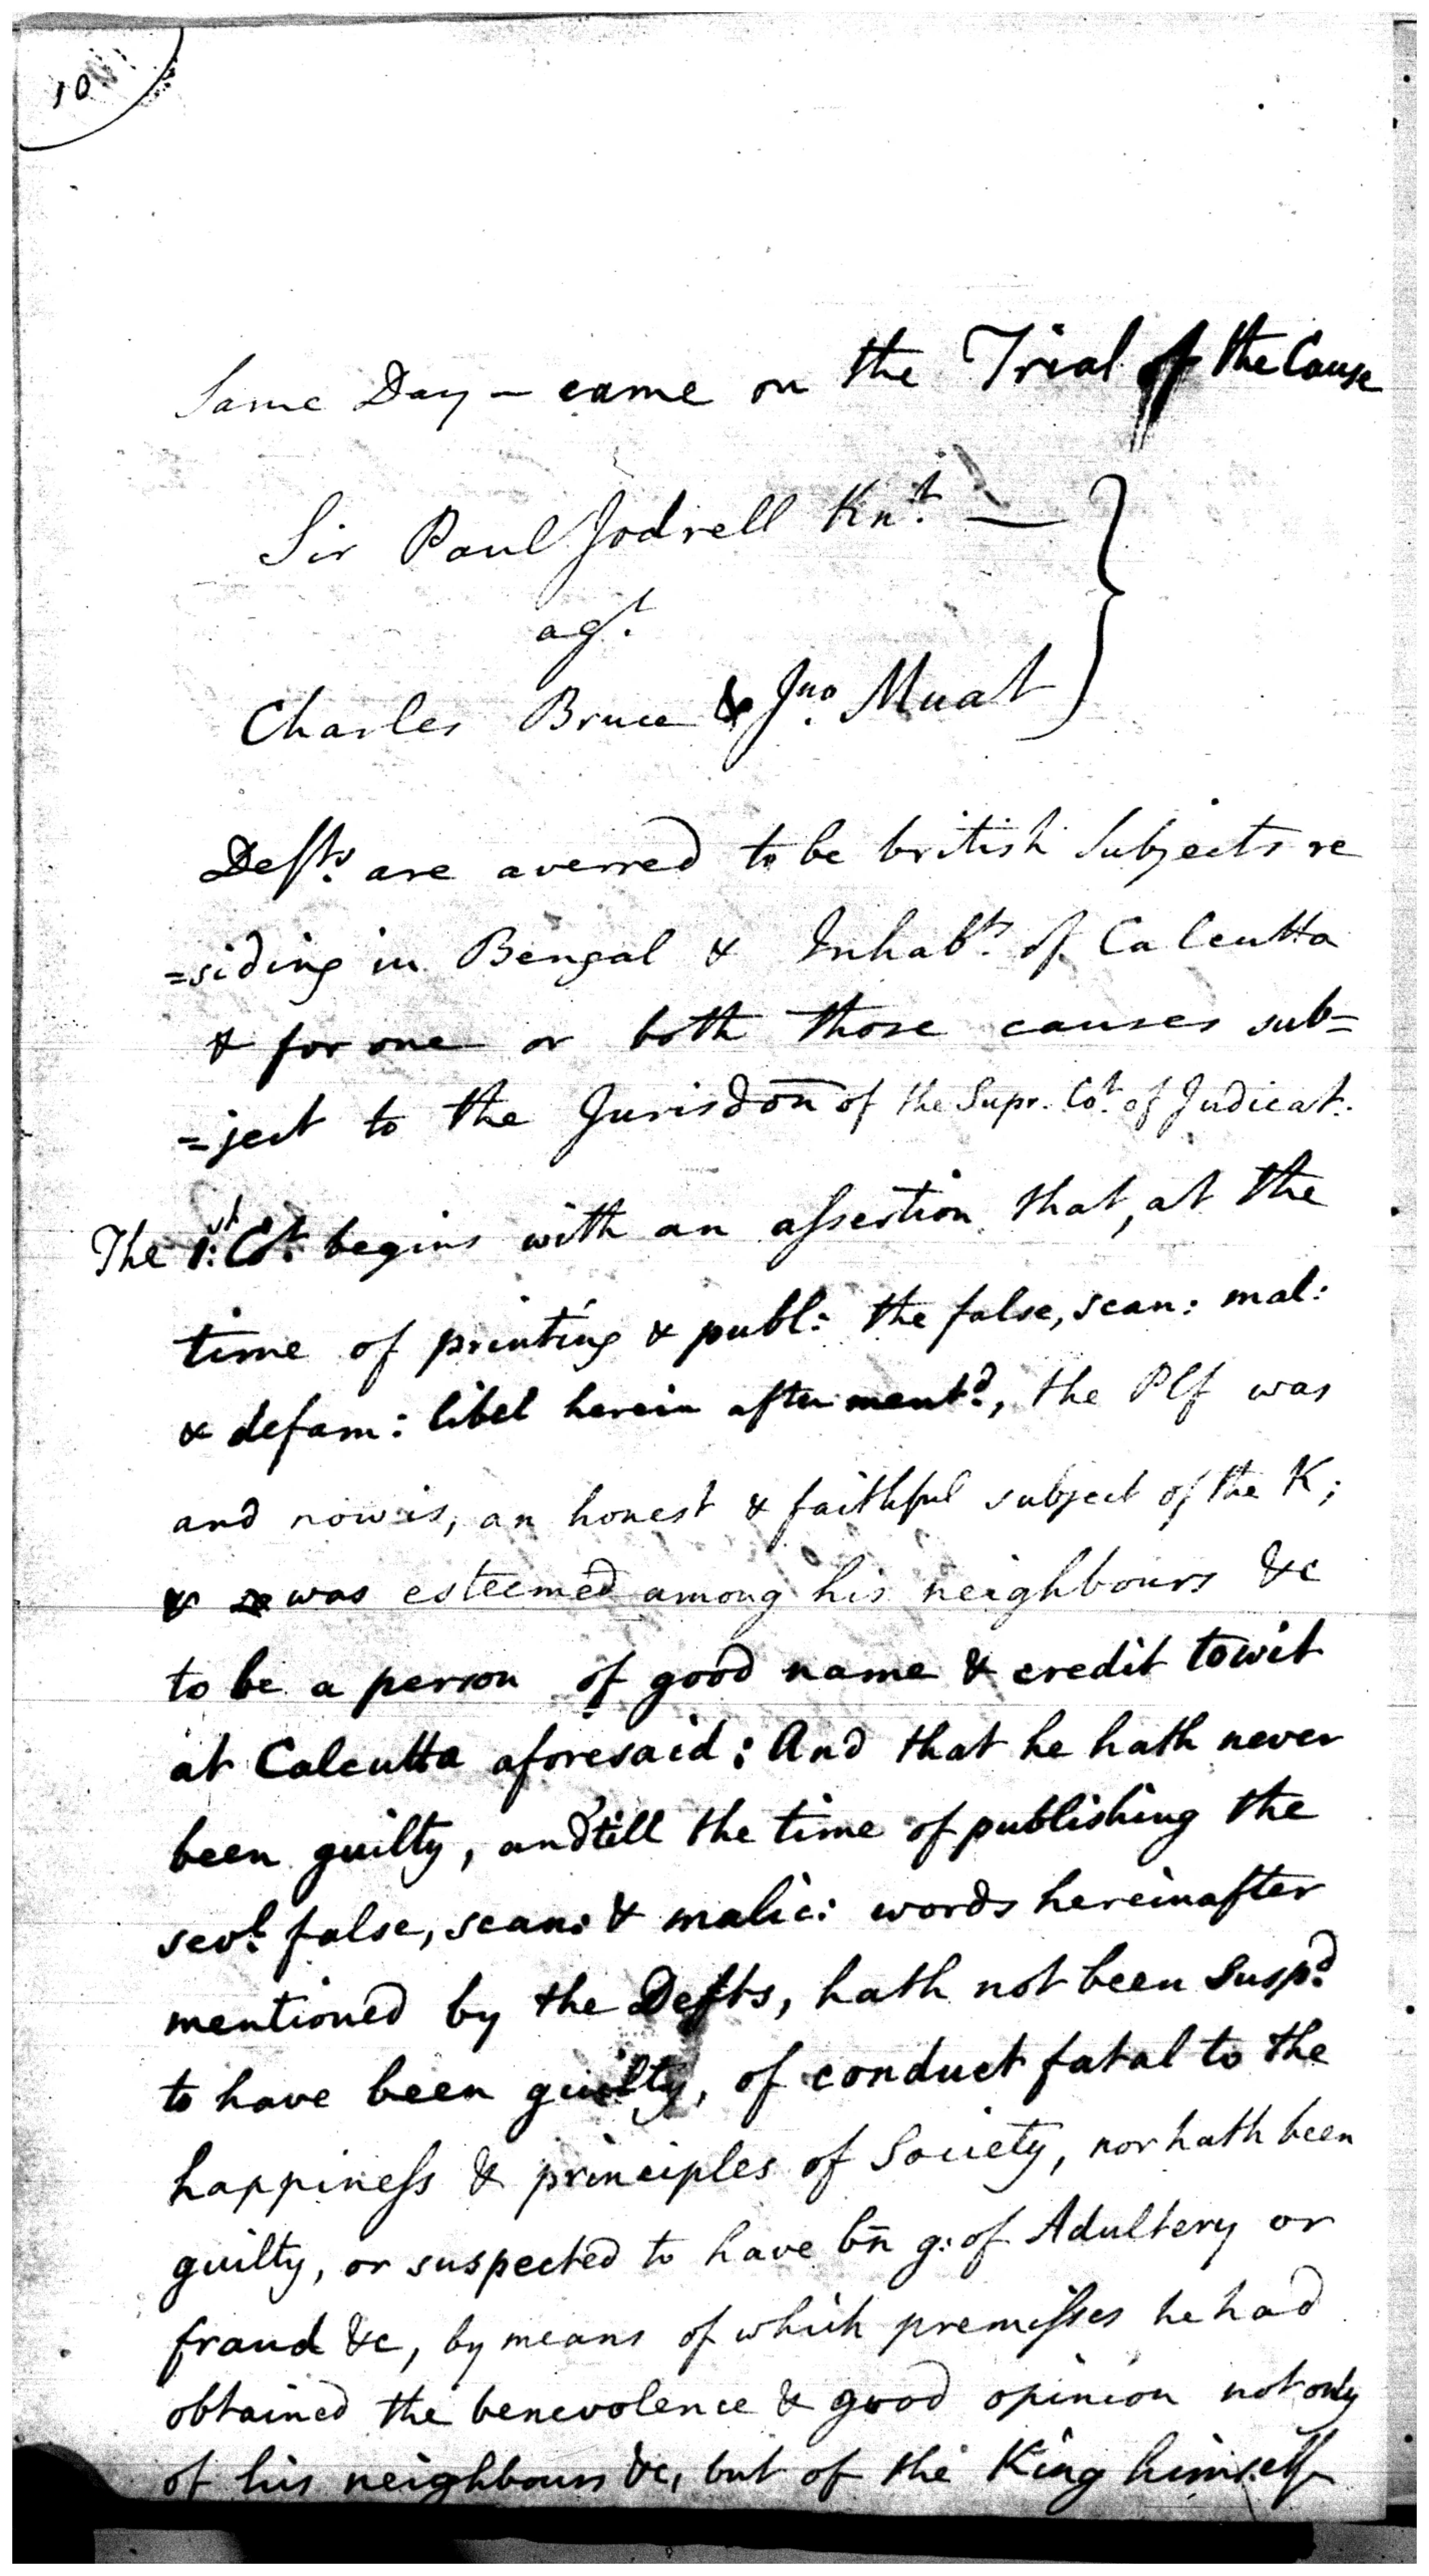 10
Same Day - came on the Trial of the Cause
Sir Paul Jodrell Knt. —
agt.
Charles Bruce & Jno. Muat
Defts. are averred to be british Subjects re
=siding in Bengal & Inhabts. of Calcutta
& for one or both those causes sub=
=ject to the Jurisdon of the Supr. Cot. of Judicat.
The 1st. Ct. begins with an assertion, that, at the
time of printing & publ: the false, scan: mal:
& defam: libel herein after mentd., the Plf was
and now is, an honest & faithful subject of the K;
& was esteemed among his neighbours &c
to be a person of good name & credit towit
at Calcutta aforesaid: And that he hath never
been guilty, and till the time of publishing the
sevl. false, scan: & malic: words hereinafter
mentioned by the Defts, hath not been Suspd.
to have been guilty, of conduct fatal to the
happiness & principles of Society, nor hath been
guilty, or suspected to have bn g: of Adultery or
fraud &c, by means of which premisses he had
obtained the benevolence & good opinion not only
of his neighbours &c, but of the King himself